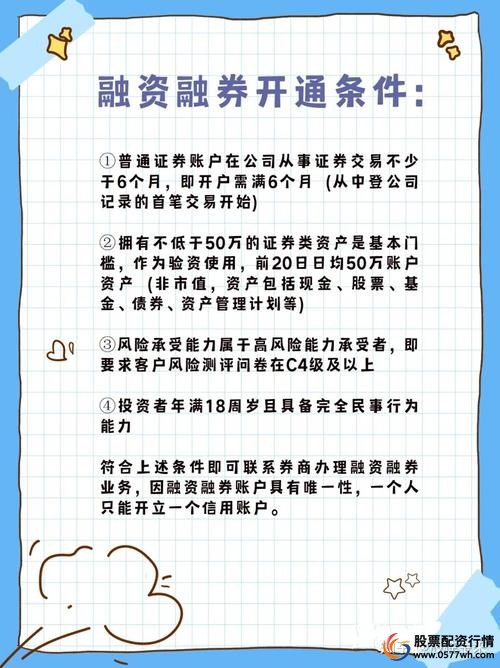 融资融券开通条件：
①普通证券账户在公司从事证券交易不少
于6个月，即开户需满6个月（从中登公司
记录的首笔交易开始)
②拥有不低于50万的证券类资产是基本门
槛，作为验资使用，前20日日均50万账户
资产（非市值，资产包括现金、股票、基
金、债券、资产管理计划等)
③风险承受能力属于高风险能力承受者，即
要求客户风险测评问卷在C4级及以上
④投资者年满18周岁且具备完全民事行为
能力
符合上述条件即可联系券商办理融资融券
业务，因融资融券账户具有唯一性，一个人
只能开立一个信用账户。
股票配资行情
www.0577wh.com